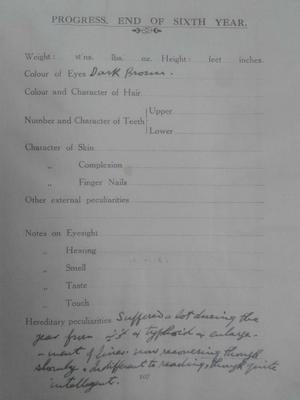 PROGRESS, END OF SIXTH YEAR.
Weight: st'ns. lbs. oz. Height: feet inches.
Colour of Eyes Dark Brown.
Colour and Character of Hair
Upper
Number and Character of Teeth
Lower
Character of Skin
„ Complexion
„ Finger Nails
Other external peculiarities
Notes on Eyesight
„ Hearing
„ Smell
„ Taste
„ Touch
Hereditary peculiarities Suffered a lot during the
year from & typhoid & enlarge-
-ment of liver. now recovering though
slowly. indifferent to reading, though quite
intelligent.
107